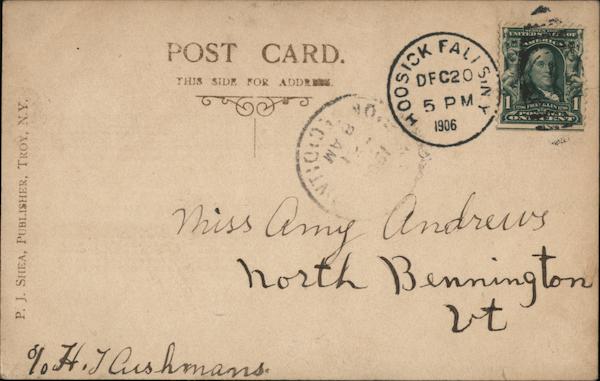 POST CARD.
THIS SIDE FOR ADDRESS.
HOOSICK FALLS N.Y.
DEC 20
5 PM
1906
UNITED STATES OF AMERICA
1 1
FRANKLIN
POSTAGE
ONE CENT
8 AM
Miss Amy Andrews
North Bennington
Vt
c/o H. T Cushmans.
P. J. SHEA, PUBLISHER, TROY, N.Y.